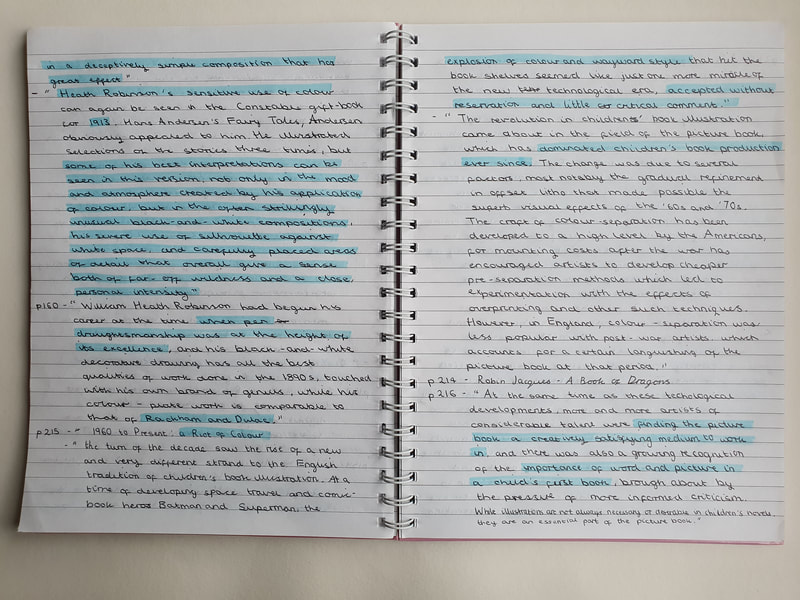 in a deceptively simple composition that has
great effect"
- "Heath Robinson's sensitive use of colour
can again be seen in the Constable gift-book
for 1913. Hans Andersen's Fairy Tales, Andersen
obviously appealed to him. He illustrated
selections of the stories three times, but
some of his best interpretations can be
seen in this version, not only in the mood
and atmosphere created by his application
of colour, but in the often strikingly
unusual black-and-white compositions,
his severe use of silhouette against
white space, and carefully placed areas
of detail that overall give a sense
both of far-off wildness and a close,
personal intensity."
p160 - "William Heath Robinson had begun his
career at the time when pen
draughtsmanship was at the height of
its excellence, and his black-and-white
decorative drawing has all the best
qualities of work done in the 1890s, touched
with his own brand of genius, while his
colour-plate work is comparable to
that of Rackham and Dulac."
p215 - "1960 to Present: a Riot of Colour
- "the turn of the decade saw the rise of a new
and very different strand to the English
tradition of children's book illustration. At a
time of developing space travel and comic-
book heros Batman and Superman, the
explosion of colour and wayward style that hit the
book shelves seemed like just one more miracle of
the new technological era, accepted without
reservation and little critical comment."
- "The revolution in childrens' book illustration
came about in the field of the picture book,
which has dominated children's book production
ever since. The change was due to several
factors, most notably the gradual refinement
in offset litho that made possible the
superb visual effects of the '60s and '70s.
The craft of colour-separation has been
developed to a high level by the Americans,
for mounting costs after the war has
encouraged artists to develop cheaper
pre-separation methods which led to
experimentation with the effects of
overprinting and other such techniques.
However, in England, colour-separation was
less popular with post-war artists which
accounts for a certain languishing of the
picture book at that period."
p.214 - Robin Jacques - A Book of Dragons
p.216 - "At the same time as these techological
developments, more and more artists of
considerable talent were finding the picture
book a creatively satisfying medium to work
in, and there was also a growing recognition
of the importance of word and picture in
a child's first book, brough about by
the pressure of more informed criticism.
While illustrations are not always necessary or desirable in children's novels,
they are an essential part of the picture book."